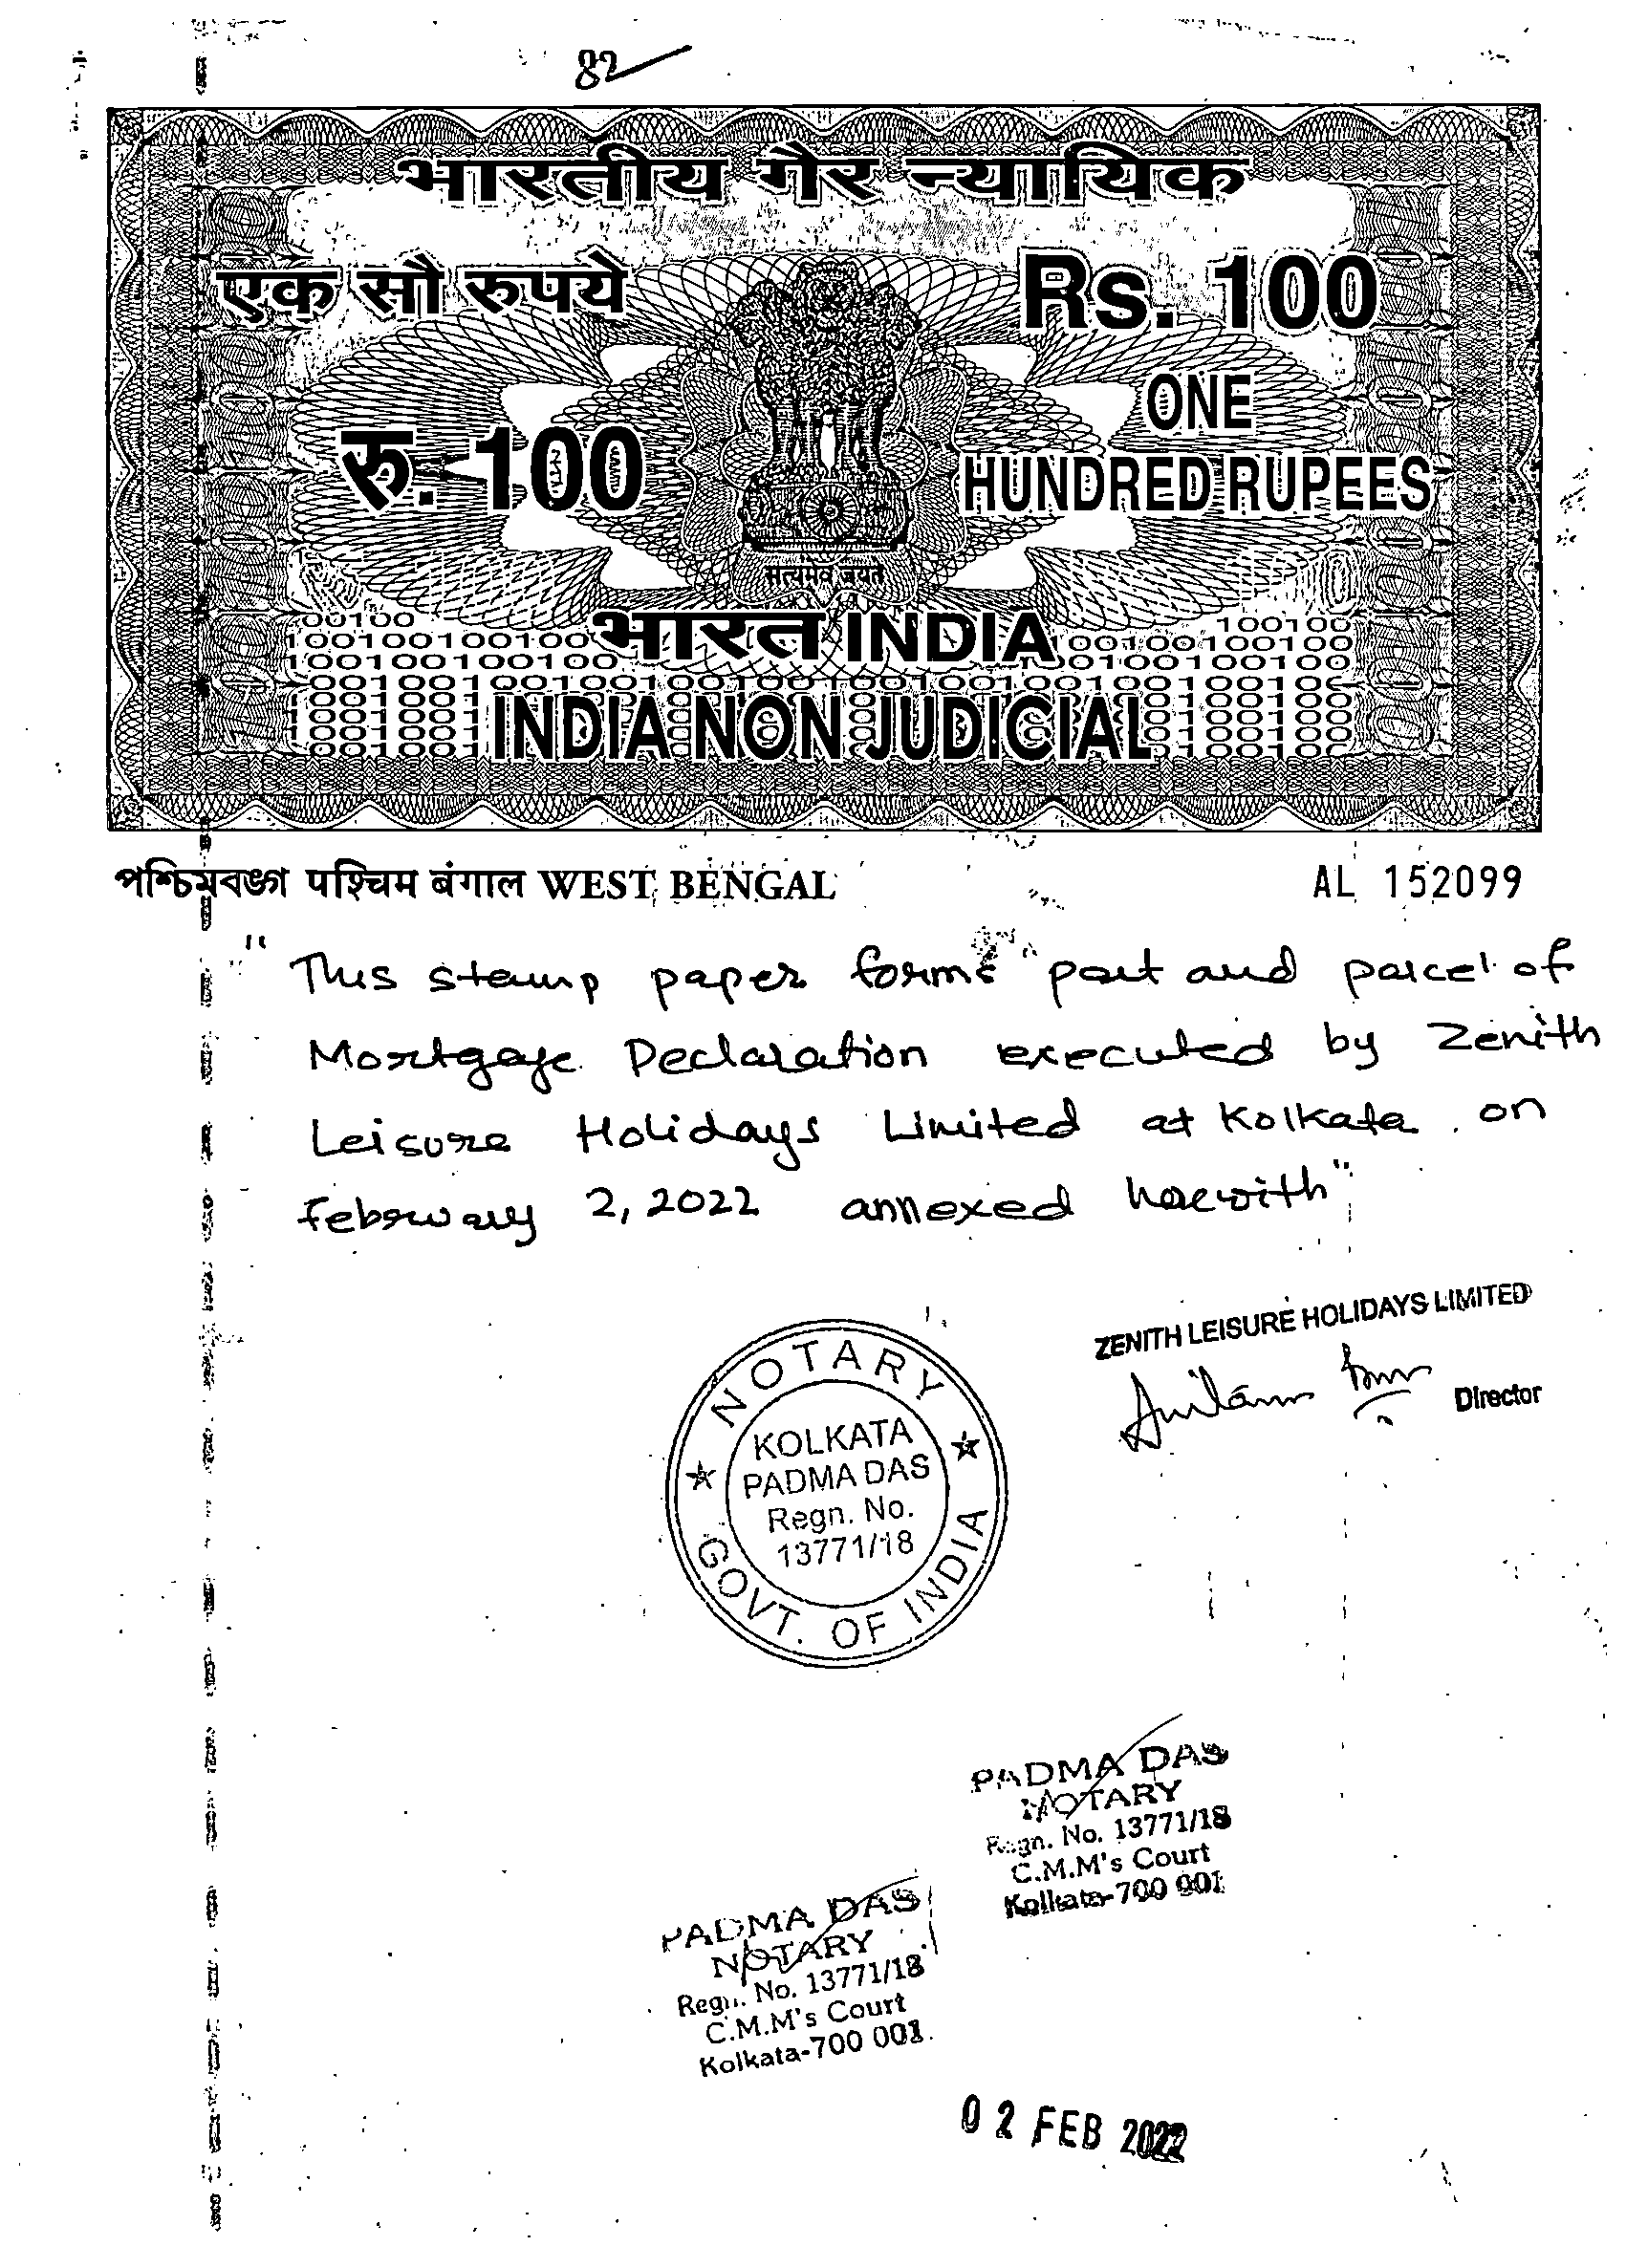 82
भारतीय गैर न्यायिक
एक सौ रुपये
Rs. 100
रु. 100
ONE
HUNDRED RUPEES
सत्यमेव जयते
भारत INDIA
INDIA NON JUDICIAL
পশ্চিমবঙ্গ पश्चिम बंगाल WEST BENGAL
AL 152099
"This stamp paper forms part and parcel of
Mortgage Declaration executed by Zenith
Leisure Holidays Limited at Kolkata, on
February 2, 2022 annexed herewith"
ZENITH LEISURE HOLIDAYS LIMITED
Director
NOTARY
KOLKATA
PADMA DAS
Regn. No.
13771/18
GOVT. OF INDIA
PADMA DAS
NOTARY
Regn. No. 13771/18
C.M.M's Court
Kolkata-700 001
PADMA DAS
NOTARY
Regn. No. 13771/18
C.M.M's Court
Kolkata-700 001
02 FEB 2022